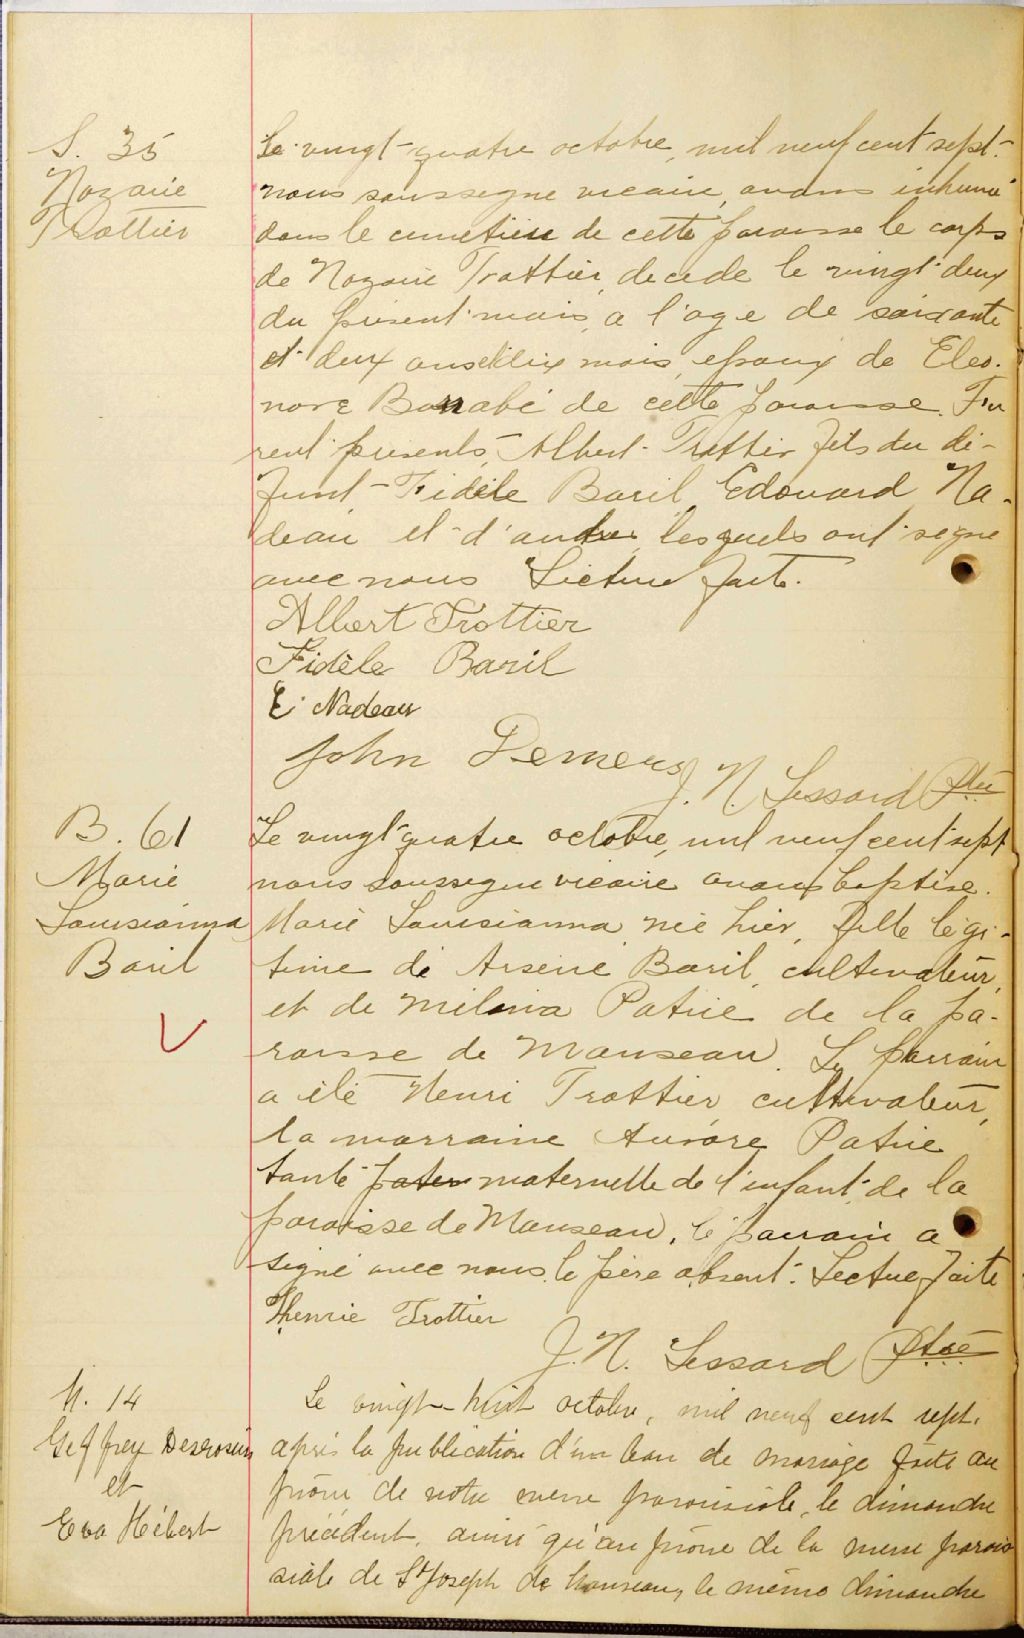 S. 35
Nozaire
Trottier
Le vingt-quatre octobre, mil neuf cent sept.
nous soussegne vicaire, avons inhumé
dans le cimetiere de cette paroisse le corps
de Nozaire Trottier, decede le vingt-deux
du présent mois, a l'age de soixante
et deux ans et dix mois, epoux de Eleo-
nore Barnabé de cette paroisse. Fu
rent présents, Albert Trottier fils du dé-
funt - Fidèle Baril, Edouard Na-
deau et d'autres lesquels ont segné
avec nous Lecture faite.
Albert Trottier
Fidèle Baril
E. Nadeau
John Demers
J. N. Lessard Ptre
B. 61
Marie
Louisianna
Baril
Le vingt-quatre octobre, mil neuf cent sept
nous soussegne vicaire avons baptise.
Marie Louisianna née hier, fille légi-
time de Arsène Baril, cultivateur,
et de Melina Patrie de la pa-
roisse de Manseau. Le parrain
a été Henri Trottier cultivateur,
la marraine Aurore Patrie
tante pater maternelle de l'enfant de la
paroisse de Manseau, le parrain a
signé avec nous le père absent. Lecture faite
Thenrie Trottier
J. N. Lessard Ptre
M. 14
Geffrey Desrosiers
et
Eva Hébert
Le vingt-huit octobre, mil neuf cent sept,
après la publication d'un ban de mariage faite au
prône de notre messe paroissiale, le dimanche
précédent, ainsi qu'au prône de la messe parois
siale de St Joseph de Manseau, le même dimanche